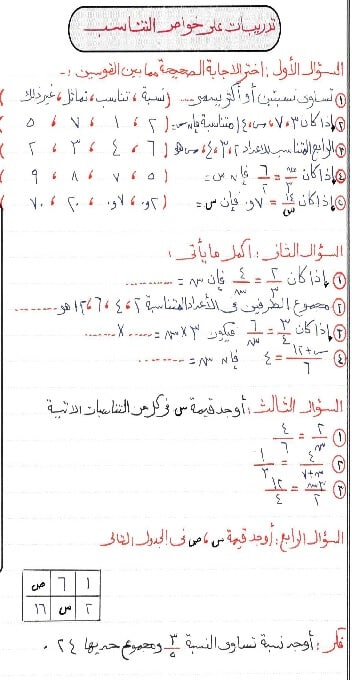 تدريبات على خواص التناسب
السؤال الأول: اختر الإجابة الصحيحة مما بين القوسين :-
① تساوى نسبتين أو أكثر يسمى ... ( نسبة ، تناسب ، تماثل ، غير ذلك )
② إذا كان ٣ ، ٧ ، س ، ٤ متناسبة فإن س = ( ٢ ، ١ ، ٧ ، ٥ )
③ الرابع المتناسب للأعداد ٢ ، ٣ ، ٤ ، س هو ( ٦ ، ٤ ، ٣ ، ٢ )
④ إذا كان س/٣ = ٦/٢ فإن س = ( ٥ ، ٧ ، ٨ ، ٩ )
إذا كان ١٤/س = ٧و٠ فإن س = ( ٢و٠ ، ٧و٠ ، ٢٠ ، ٧٠ )
السؤال الثانى : أكمل ما يأتى :
① إذا كان ٢/٣ = ٤/س فإن س = ..........
② مجموع الطرفين فى الأعداد المتناسبة ٢ ، ٤ ، ٦ ، ١٢ هو .......
③ إذا كان ٣/٤ = ٦/س فيكون ٣ × س = ...... × ......
④ س+١٢/٦ = ٤ فإن س = ..........
السؤال الثالث : أوجد قيمة س فى كل من التناسبات الآتية
① ٢/س = ٤/٦
② ٤/س+٧ = ١/٣
③ ٣س/٢ = ١٢/٤
السؤال الرابع : أوجد قيمة س ، ص فى الجدول التالى
١ ٦ ص
٢ س ١٦
فكر : أوجد نسبة تساوى النسبة ٣/٥ ومجموع حديها ٢٤ .